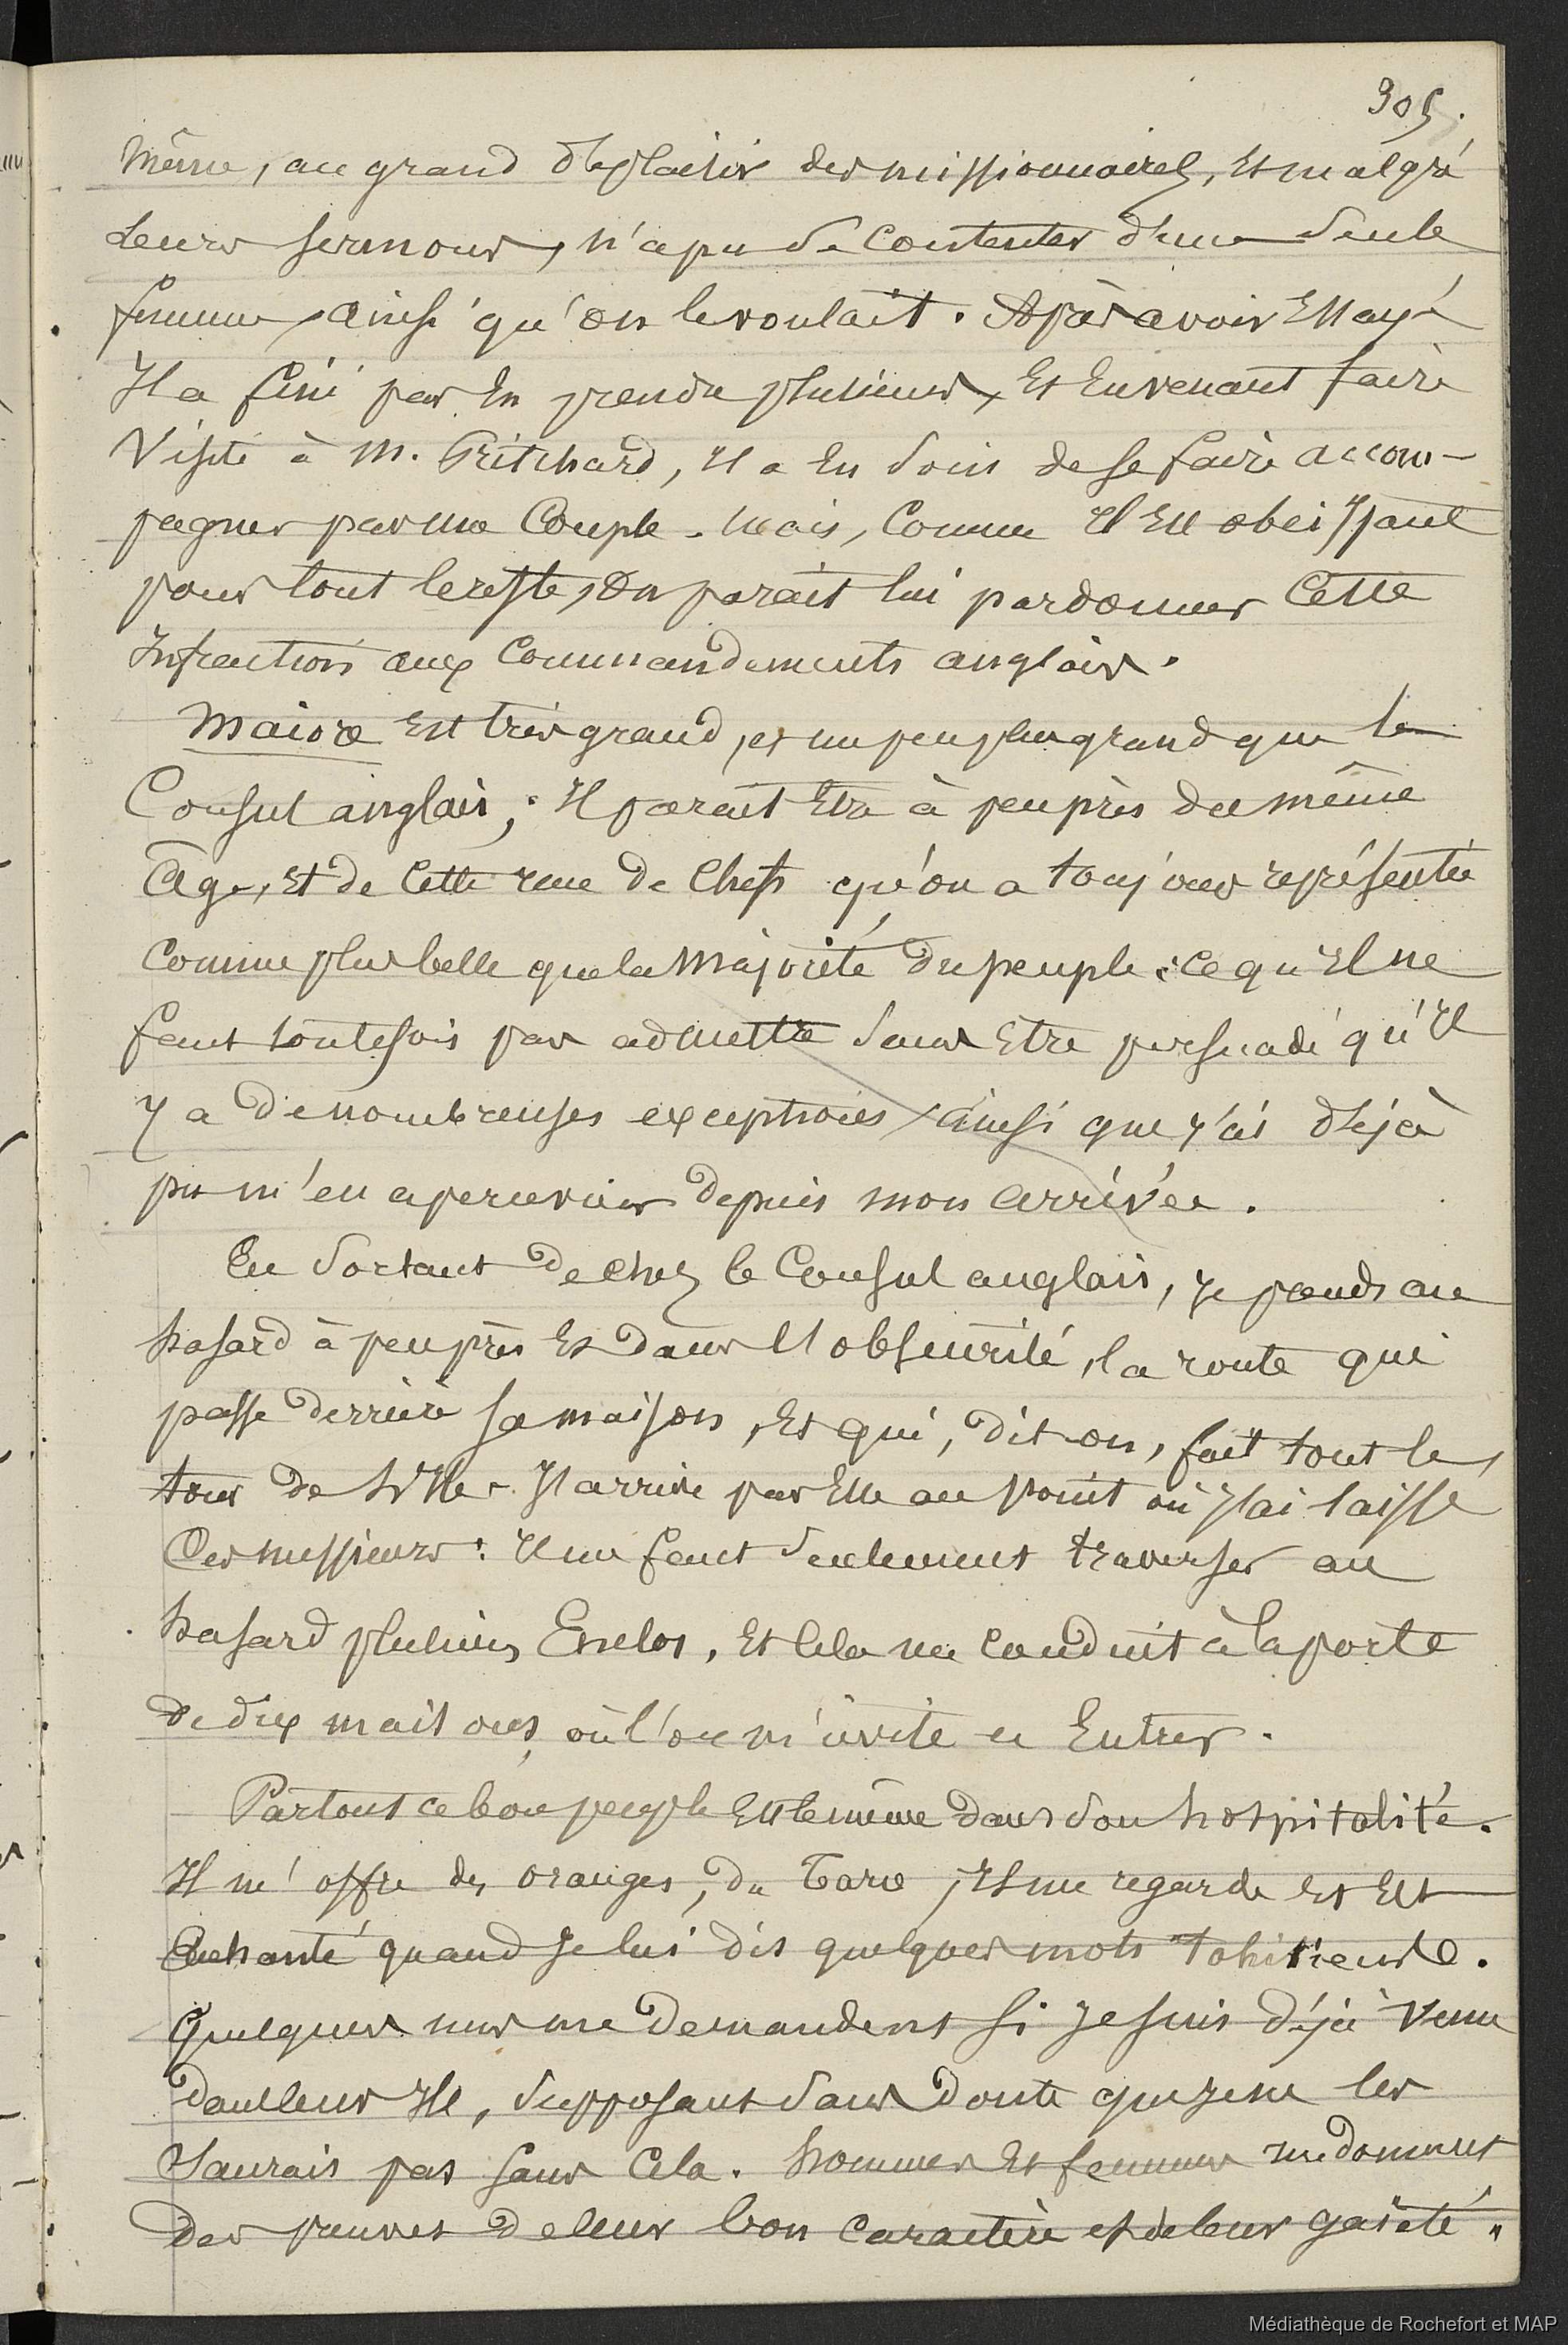 305.
même, au grand déplaisir des missionnaires, et malgré
leurs sermons, n'a pu se contenter d'une seule
femme, ainsi qu'on le voulait. Après avoir essayé
Il a fini par en prendre plusieurs, et en venant faire
visite à M. Pritchard, il a eu soin de se faire accom-
pagner par une couple. Mais, comme il est obéissant
pour tout le reste, on paraît lui pardonner cette
infraction aux commandements anglais.
Maioro est très grand, et un peu plus grand que le
Consul anglais; Il paraît être à peu près du même
âge, et de cette race de chefs qu'on a toujours représentée
comme plus belle que la majorité du peuple: ce qu'il ne
faut toutefois pas admettre sans être persuadé qu'il
y a de nombreuses exceptions, ainsi que j'ai déjà
pu m'en apercevoir depuis mon arrivée.
En sortant de chez le Consul anglais, je prends au
hasard à peu près et dans l'obscurité, la route qui
passe derrière sa maison, et qui, dit-on, fait tout le
tour de l'île. J'arrive par elle au point où j'ai laissé
ces messieurs: Il me faut seulement traverser au
hasard plusieurs enclos, et cela me conduit à la porte
de dix maisons où l'on m'invite à entrer.
Partout ce bon peuple est le même dans son hospitalité.
Il m'offre des oranges, du taro; Il me regarde et est
enchanté quand je lui dis quelques mots tahitiens.
Quelques uns me demandent si je suis déjà venu
dans leur île, supposant sans doute que je ne les
saurais pas sans cela. Hommes et femmes me donnent
des preuves de leur bon caractère et de leur gaieté.
Médiathèque de Rochefort et MAP